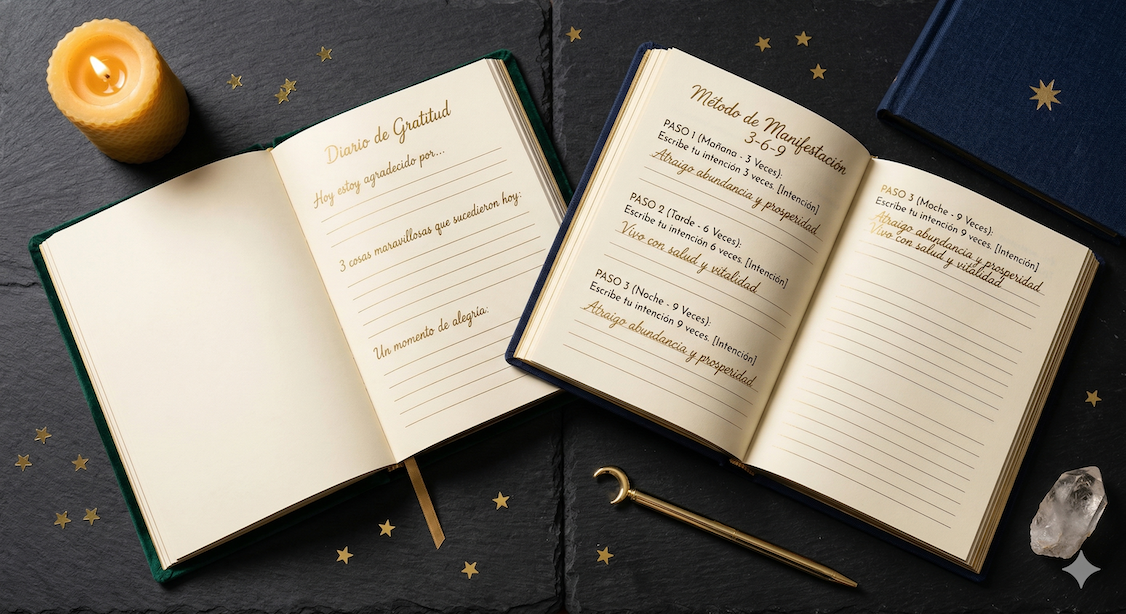 Diario de Gratitud
Hoy estoy agradecido por...
3 cosas maravillosas que sucedieron hoy:
Un momento de alegría:
Método de Manifestación
3-6-9
PASO 1 (Mañana - 3 Veces):
Escribe tu intención 3 veces. [Intención]
Atraigo abundancia y prosperidad
PASO 2 (Tarde - 6 Veces):
Escribe tu intención 6 veces. [Intención]
Vivo con salud y vitalidad
PASO 3 (Noche - 9 Veces):
Escribe tu intención 9 veces. [Intención]
Atraigo abundancia y prosperidad
PASO 3 (Moche - 9 Veces):
Escribe tu intención 9 veces. [Intención]
Atraigo abundancia y prosperidad
Vivo con salud y vitalidad